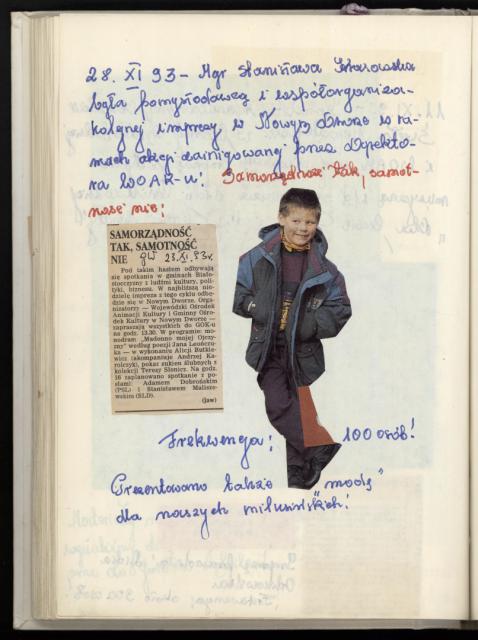 28. XI 93 - Mgr Stanisława
była pomysłodawcą i współorganiza-
kolejnej imprezy w Nowym Dworze w ra-
mach akcji zainicjowanej przez Dyrekto-
ra WOAK-u! Samorządność tak, samot-
ność nie!
SAMORZĄDNOŚĆ
TAK, SAMOTNOŚĆ
NIE GW 23.XI.93r.
Pod takim hasłem odbywają
się spotkania w gminach Biało-
stocczyzny z ludźmi kultury, poli-
tyki, biznesu. W najbliższą nie-
dzielę impreza z tego cyklu odbę-
dzie się w Nowym Dworze. Orga-
nizatorzy — Wojewódzki Ośrodek
Animacji Kultury i Gminny Ośro-
dek Kultury w Nowym Dworze —
zapraszają wszystkich do GOK-u
na godz. 13.30. W programie: mo-
nodram „Madonno mojej Ojczy-
zny" według poezji Jana Leończu-
ka — w wykonaniu Alicji Butkie-
wicz (akompaniuje Andrzej Ka-
rolczyk), pokaz sukien ślubnych z
kolekcji Teresy Słonicz. Na godz.
16 zaplanowano spotkanie z po-
słami: Adamem Dobrońskim
(PSL) i Stanisławem Malisze-
wskim (SLD).
(jaw)
Frekwencja: 100 osób!
Prezentowano także "modę"
dla naszych milusińskich!